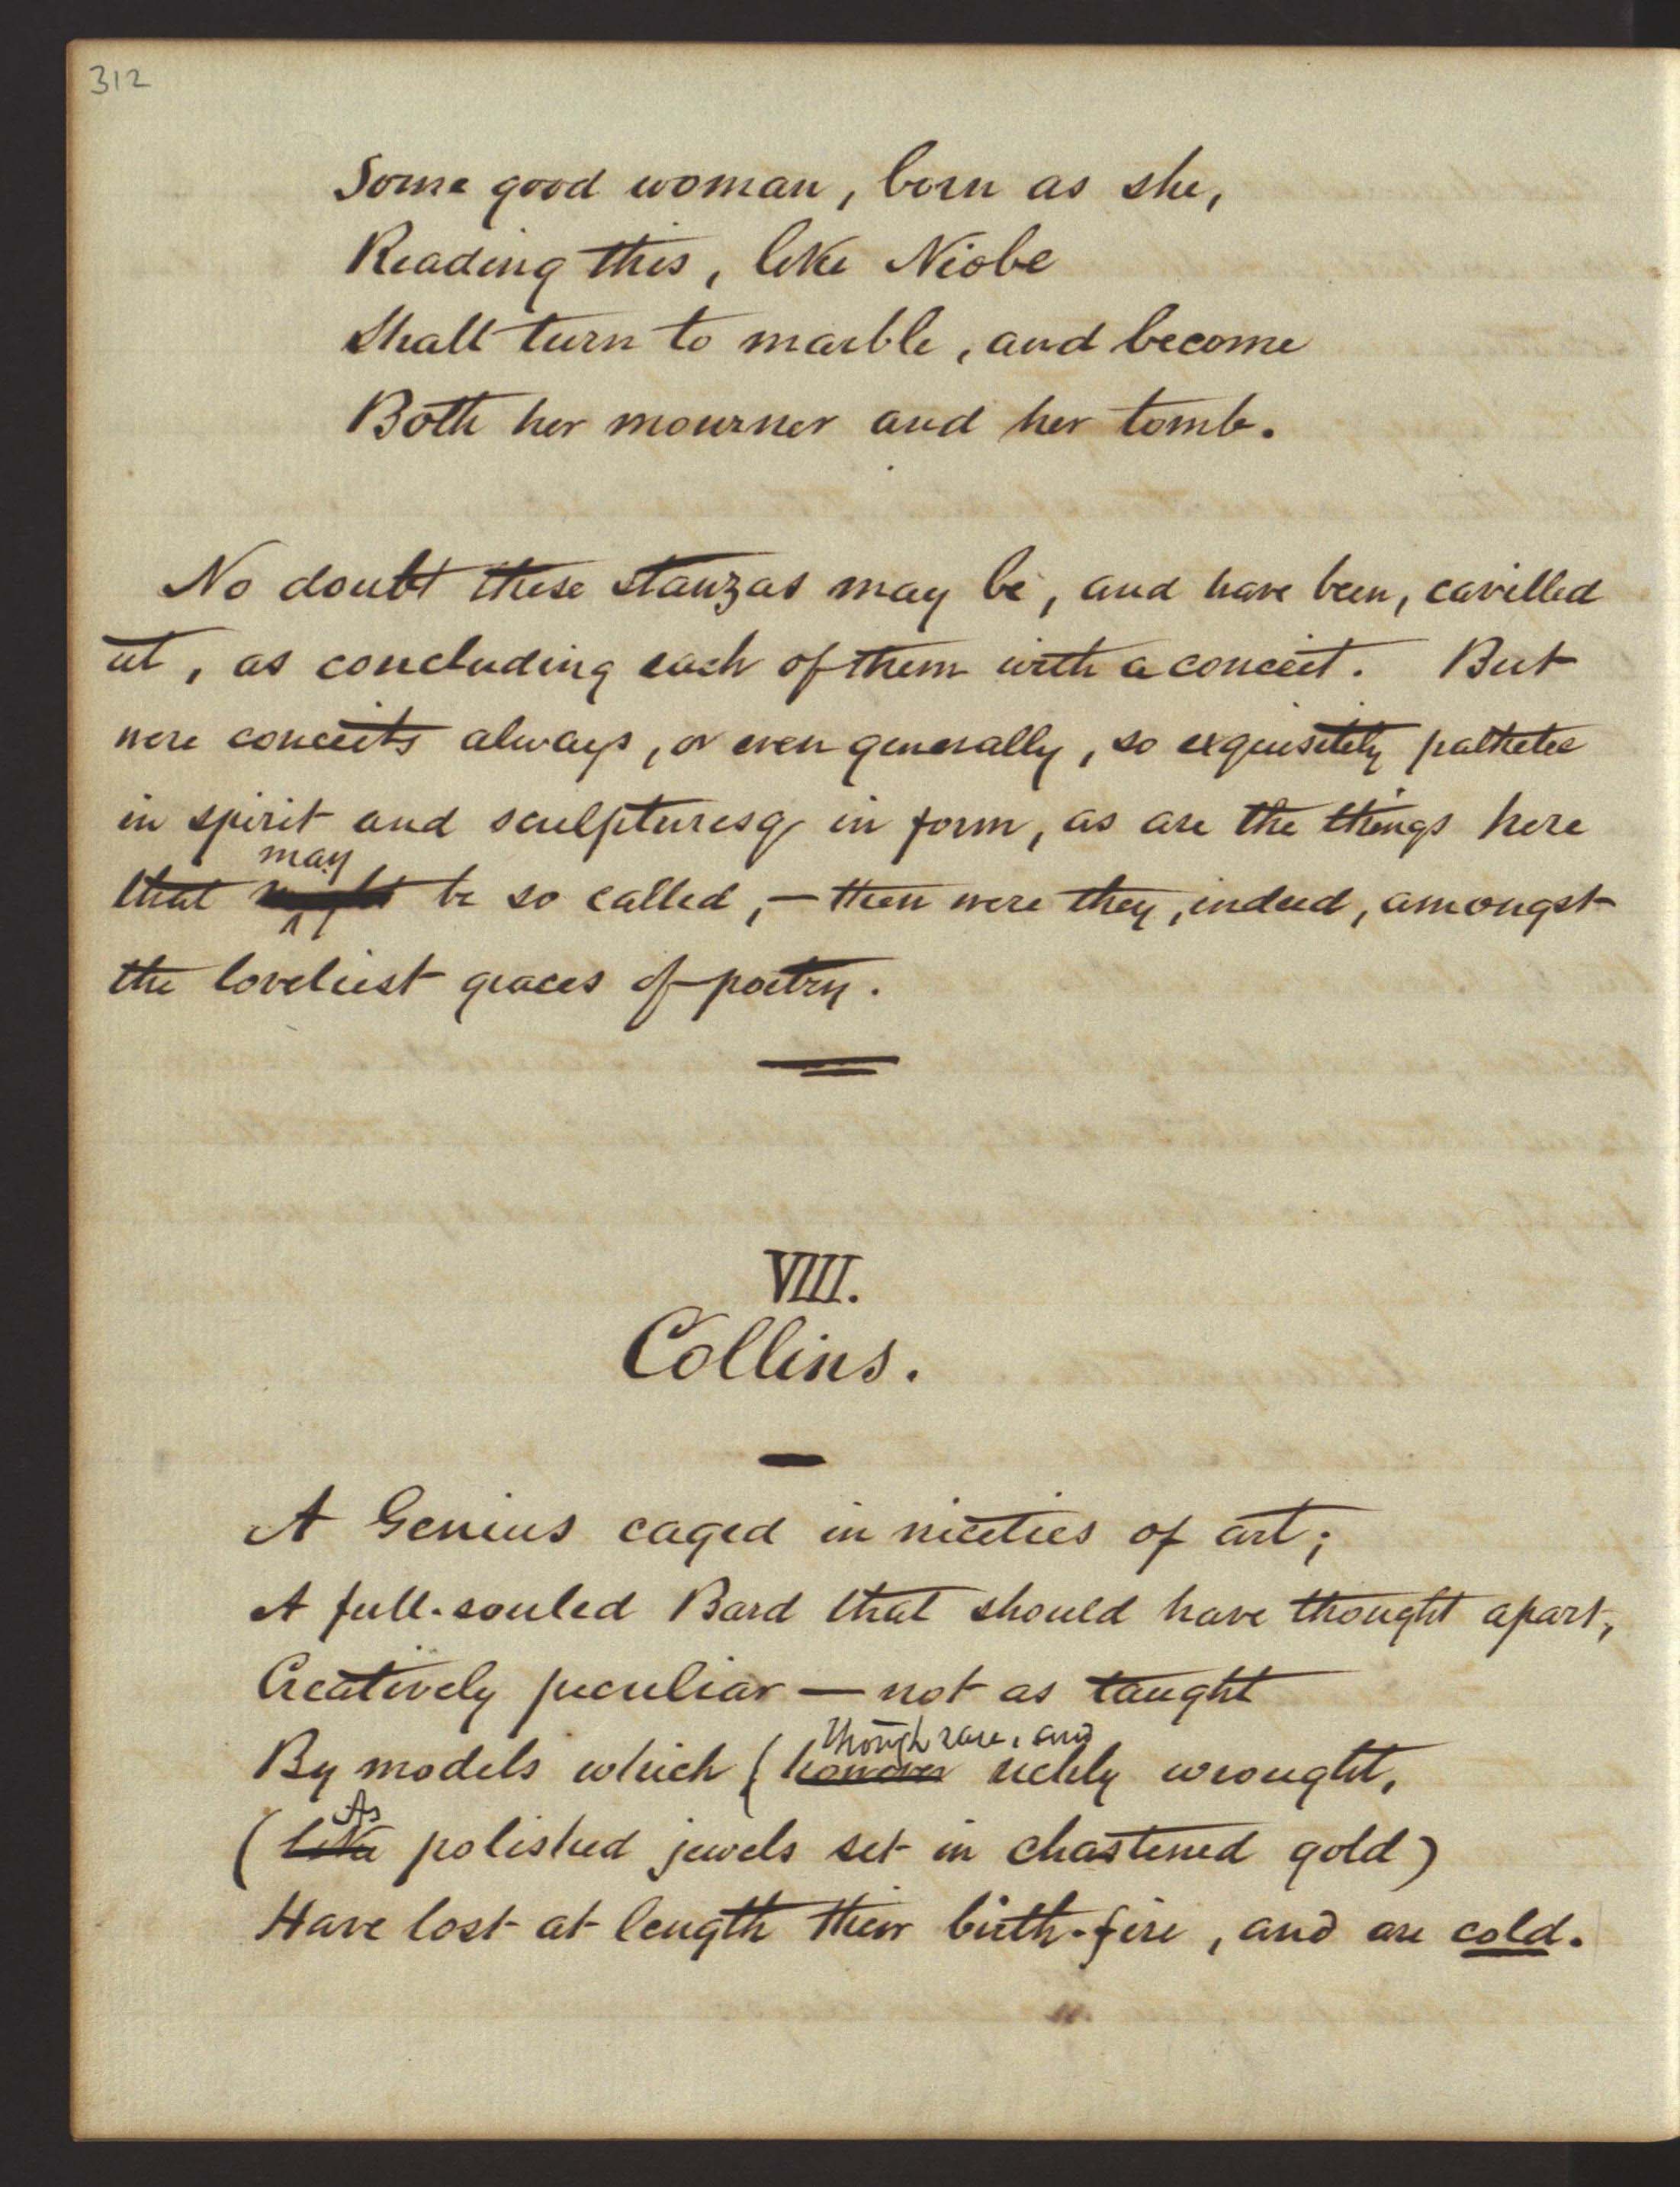 312
Some good woman, born as she,
Reading this, like Niobe
Shall turn to marble, and become
Both her mourner and her tomb.
No doubt these stanzas may be, and have been, cavilled
at, as concluding each of them with a conceit. But
were conceits always, or even generally, so exquisitely pathetic
in spirit and sculpturesq in form, as are the things here
may
that might be so called,— then were they, indeed, amongst
the loveliest graces of poetry.
VIII.
Collins.
A Genius caged in niceties of art;
A full-souled Bard that should have thought apart,
Creatively peculiar — not as taught
though rare, and
By models which (however richly wrought,
As
(like polished jewels set in chastened gold)
Have lost at length their birth-fire, and are cold.